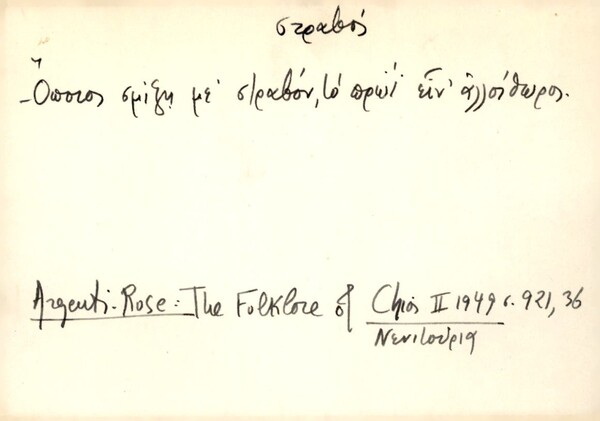 στραβός
-Όποιος σμίξη με στραβόν, το πρωΐ είν' αλλοίθωρος.
Argenti-Rose: The Folklore of Chios II 1949 σ. 921, 36
Νενιτούρια